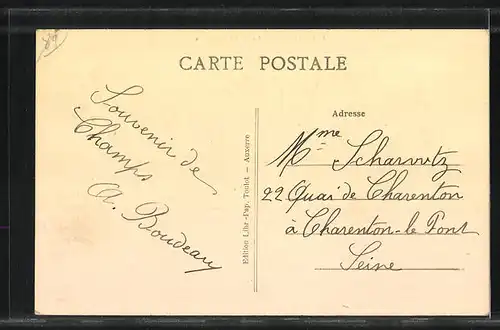 CARTE POSTALE
Souvenir de
Champs
A. Boudeau
Edition Libr.-Pap. Toulot — Auxerre
Adresse
Mme Scharwtz
22 Quai de Charenton
à Charenton-le Pont
Seine